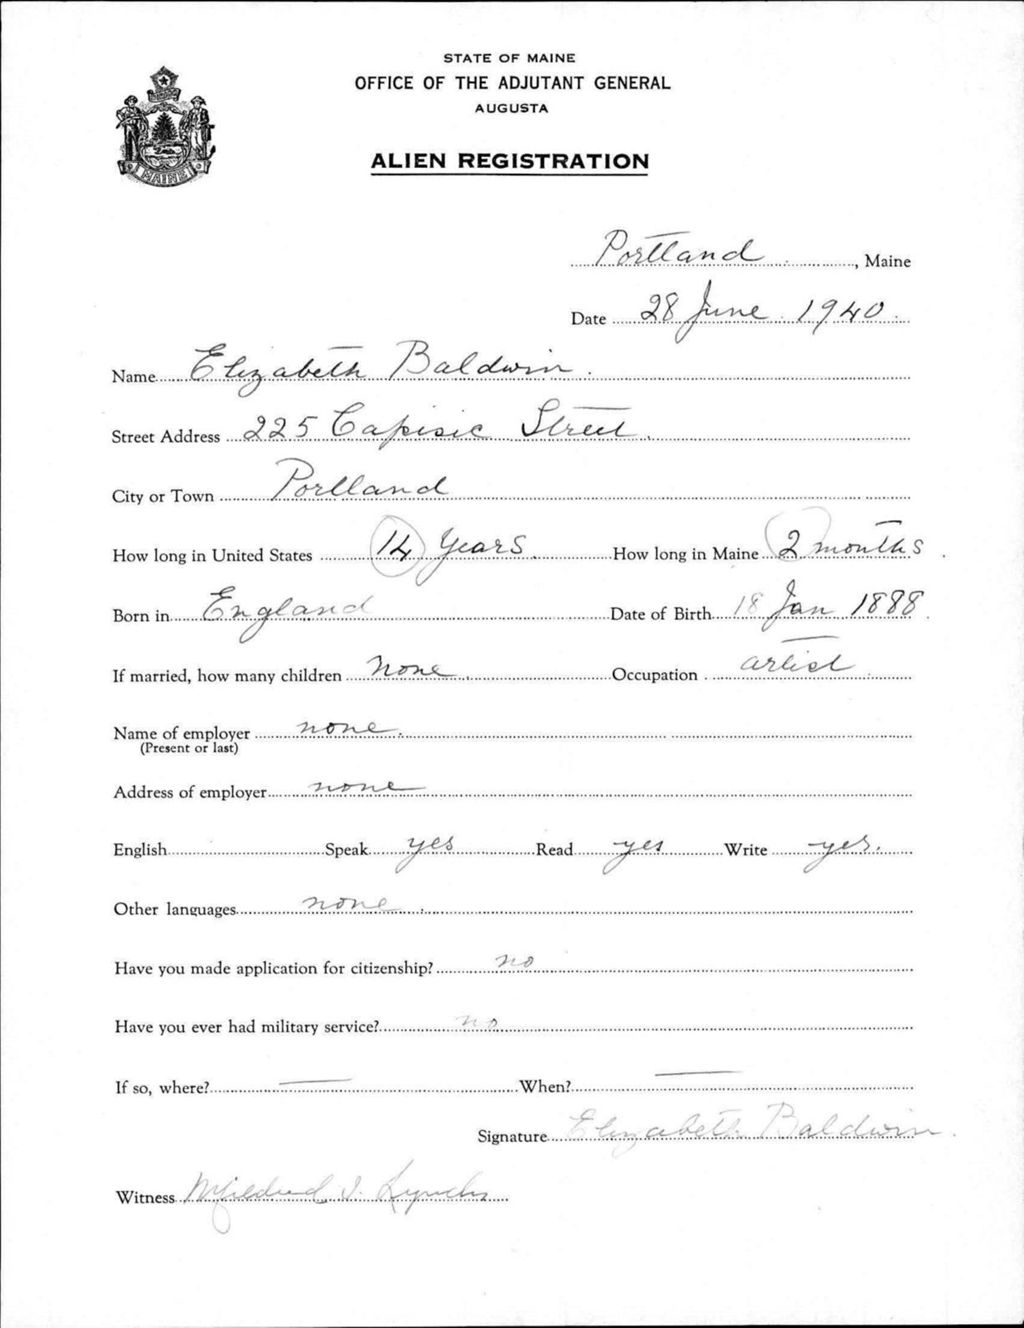 STATE OF MAINE
OFFICE OF THE ADJUTANT GENERAL
AUGUSTA
ALIEN REGISTRATION
MAINE
Portland, Maine
Date 28 June 1940
Name Elizabeth Baldwin
Street Address 225 Capisic Street
City or Town Portland
How long in United States 14 Years How long in Maine 2 months
Born in England Date of Birth 18 Jan 1888
If married, how many children none Occupation artist
Name of employer none
(Present or last)
Address of employer none
English Speak yes Read yes Write yes.
Other languages none
Have you made application for citizenship? no
Have you ever had military service? no
If so, where? — When? —
Signature Elizabeth Baldwin
Witness Mildred I. Lynch